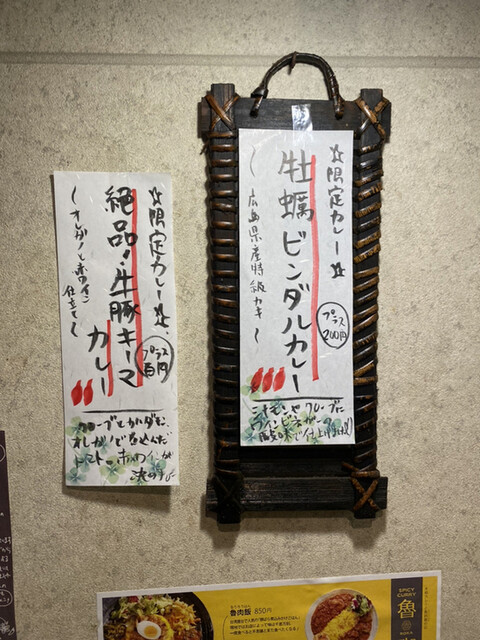 ☆限定カレー☆
牡蠣ビンダルカレー
〜広島県産特級カキ〜
プラス
200円
シナモンやクローブに
ワインビネガーの
酸味で仕上げました
☆限定カレー☆
絶品!牛豚キーマ
カレー
〜オレガノと赤ワイン
仕立て〜
プラス
百円
クローブとカルダモン、
オレガノで煮込んだ
トマト
魯肉飯 850円
SPICY
CURRY
魯